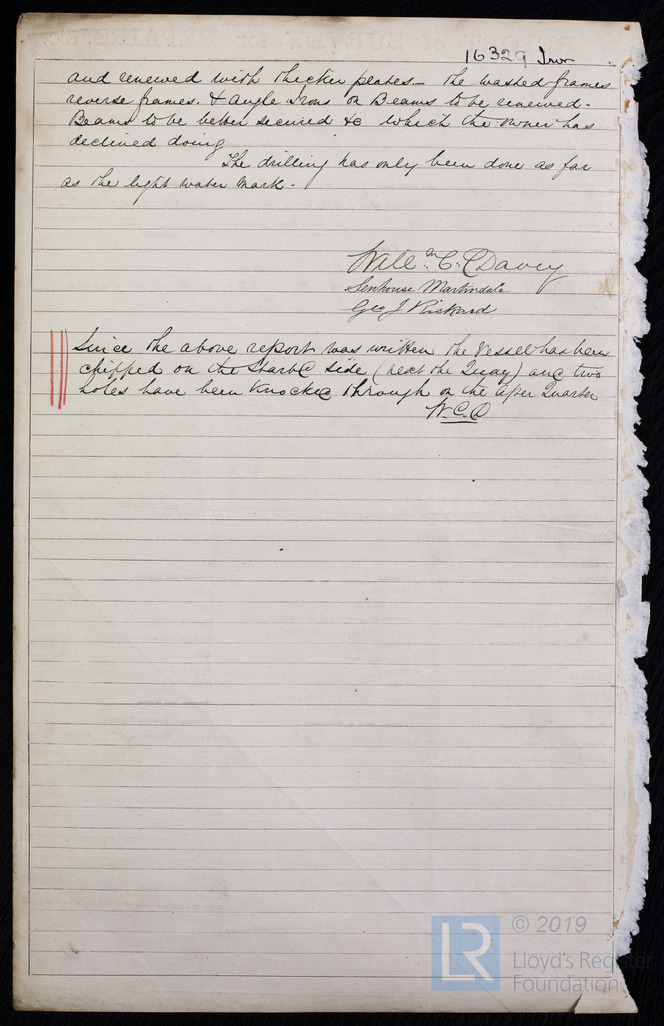 16329 Iron
and renewed with thicker plates - The wasted frames
reverse frames. & angle Irons on Beams to be renewed -
Beams to be better secured &c which the owner has
declined doing
The drilling has only been done as far
as the light water mark -
Will.m C. Davey
Senhouse Martindale
Geo J Rickard
Since the above report was written the Vessel has been
chipped on the Starbd side (next the Quay) and two
holes have been knocked through on the after Quarter
W.C.D
© 2019
LR
Lloyd's Register
Foundation